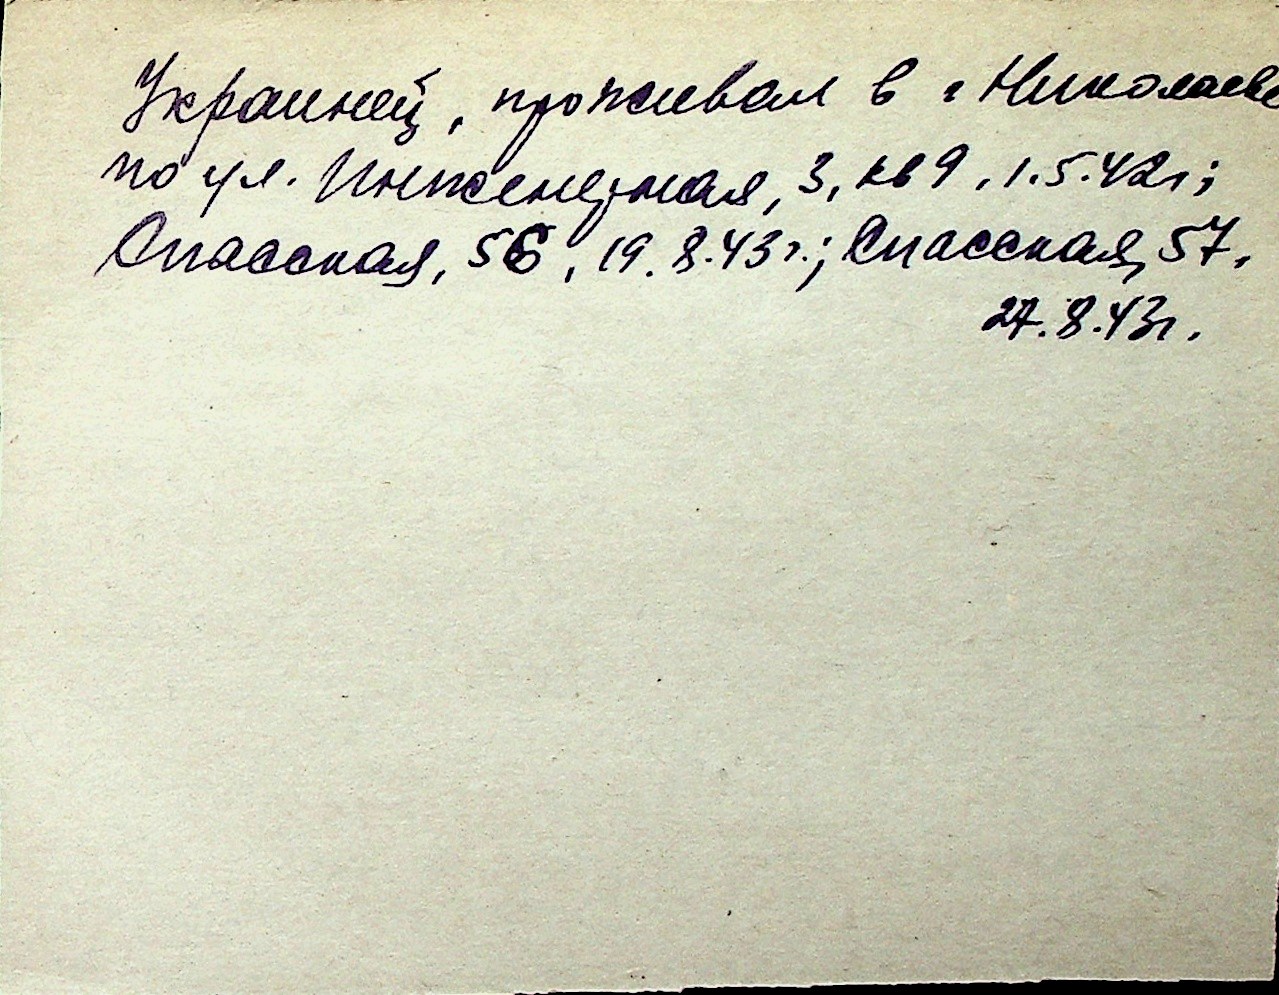 Украинец, проживал в г Николаеве
по ул. Инженерная, 3, кв 9, 1.5.42г;
Спасская, 56, 19.8.43г.; Спасская, 57,
27.8.43г.